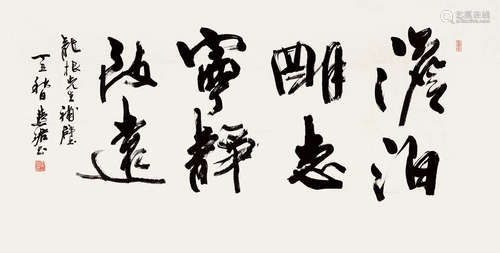 澹泊
明志
寧靜
致遠
龍根先生補壁
丁丑秋日